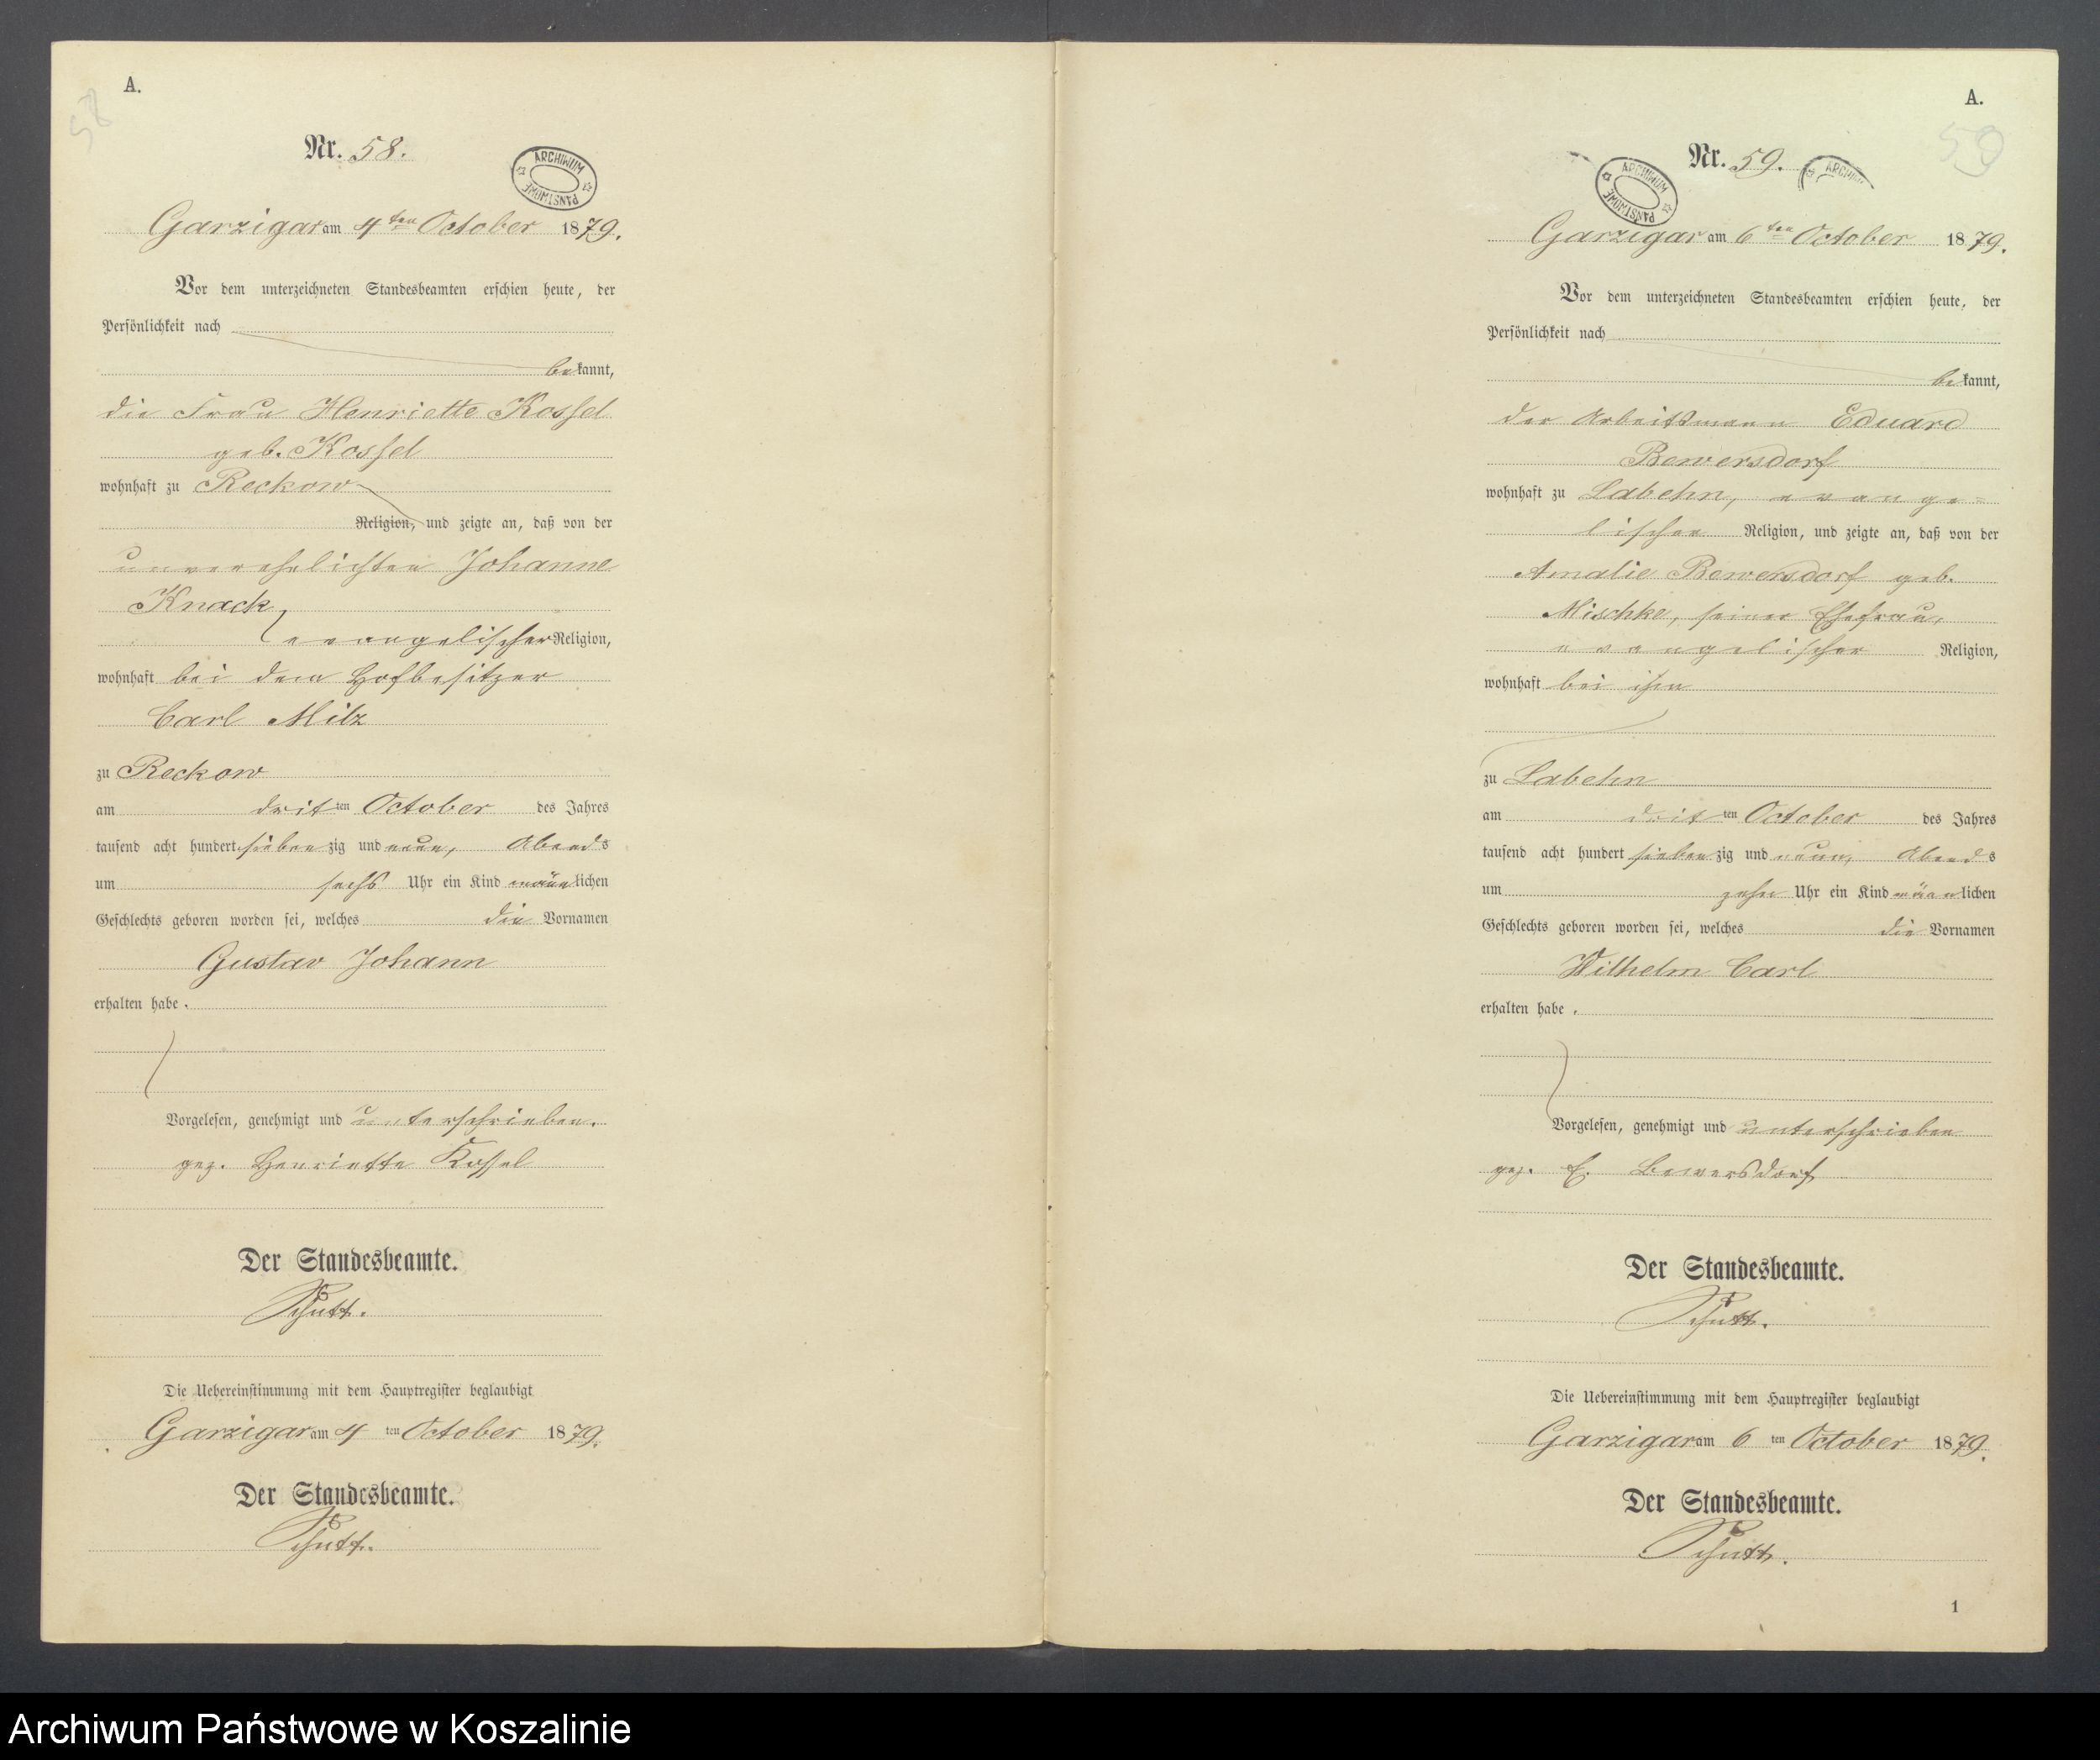 58
A.
Nr. 58.
ARCHIWUM PAŃSTWOWE
Garzigar am 4ten October 1879.
Vor dem unterzeichneten Standesbeamten erschien heute, der
Persönlichkeit nach
bekannt,
die Frau Henriette Kossel
geb. Kossel
wohnhaft zu Reckow
Religion, und zeigte an, daß von der
unverehelichten Johanne
Knack,
evangelischer Religion,
wohnhaft bei dem Hofbesitzer
Carl Milz
zu Reckow
am dritten October des Jahres
tausend acht hundert siebenzig und neun, Abends
um sechs Uhr ein Kind männlichen
Geschlechts geboren worden sei, welches die Vornamen
Gustav Johann
erhalten habe.
Vorgelesen, genehmigt und unterschrieben.
gez. Henriette Kossel
Der Standesbeamte.
Schutt.
Die Uebereinstimmung mit dem Hauptregister beglaubigt
Garzigar am 4ten October 1879.
Der Standesbeamte.
Schutt.
A.
59
Nr. 59.
ARCHIWUM PAŃSTWOWE
ARCHIWUM
Garzigar am 6ten October 1879.
Vor dem unterzeichneten Standesbeamten erschien heute, der
Persönlichkeit nach
bekannt,
der Arbeitsmann Eduard
Bewersdorf
wohnhaft zu Labehn, evange=
lischer Religion, und zeigte an, daß von der
Amalie Bewersdorf geb.
Mischke, seiner Ehefrau,
evangelischer Religion,
wohnhaft bei ihm
zu Labehn
am dritten October des Jahres
tausend acht hundert siebenzig und neun, Abends
um zehn Uhr ein Kind männlichen
Geschlechts geboren worden sei, welches die Vornamen
Wilhelm Carl
erhalten habe.
Vorgelesen, genehmigt und unterschrieben
gez. E. Bewersdorf
Der Standesbeamte.
Schutt.
Die Uebereinstimmung mit dem Hauptregister beglaubigt
Garzigar am 6ten October 1879.
Der Standesbeamte.
Schutt.
1
Archiwum Państwowe w Koszalinie